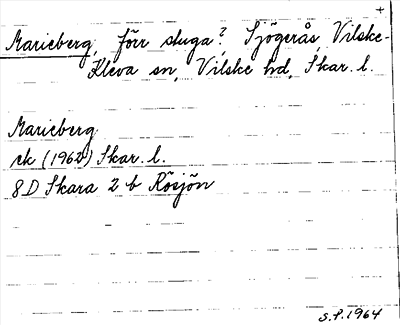 +
Marieberg, förr stuga?, Sjögerås, Vilske-
Kleva sn, Vilske hd, Skar. l.
Marieberg
ek (1962) Skar. l.
8D Skara 2 b Rösjön
S.P. 1964